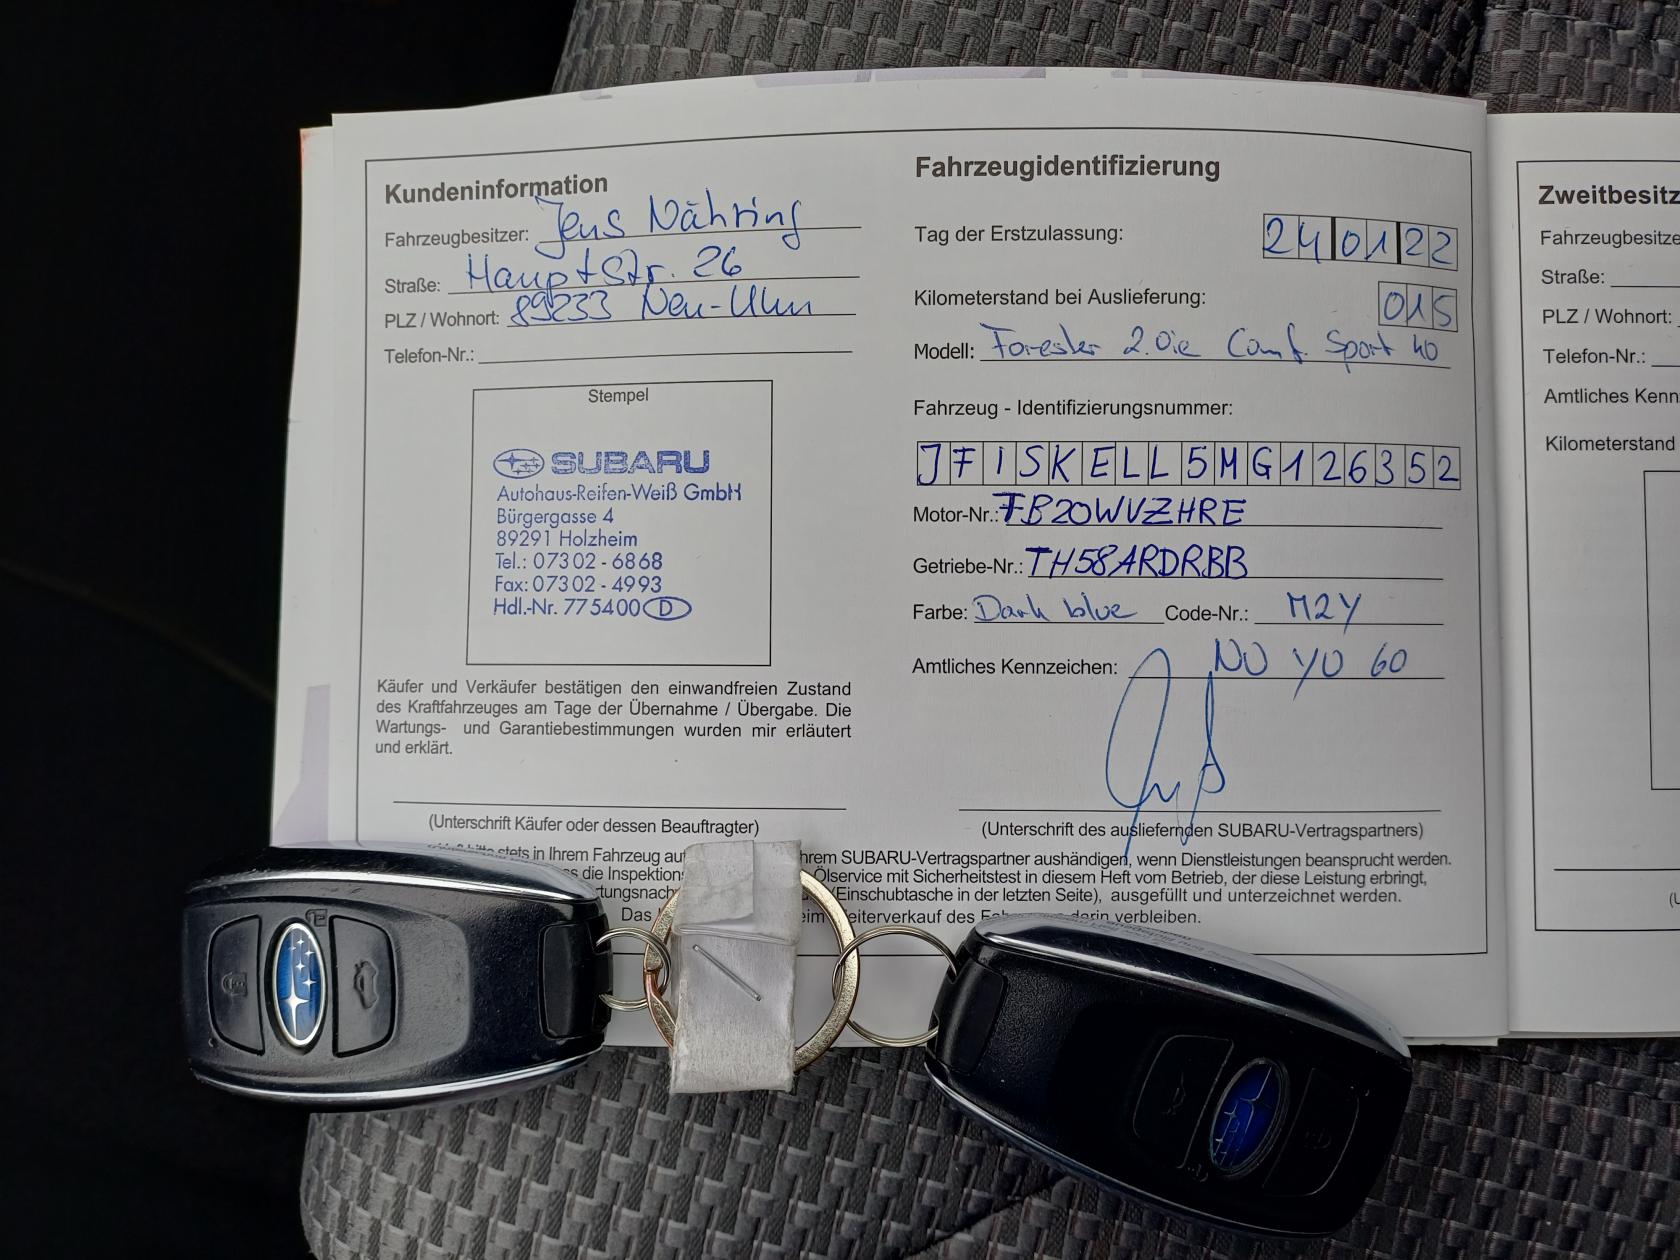 Kundeninformation
Fahrzeugbesitzer: Jens Nähring
Straße: Hauptstr. 26
PLZ / Wohnort: 89233 Neu-Ulm
Telefon-Nr.:
Stempel
SUBARU
Autohaus-Reifen-Weiß GmbH
Bürgergasse 4
89291 Holzheim
Tel.: 07302-6868
Fax: 07302-4993
Hdl.-Nr. 775400 D
Käufer und Verkäufer bestätigen den einwandfreien Zustand
des Kraftfahrzeuges am Tage der Übernahme / Übergabe. Die
Wartungs- und Garantiebestimmungen wurden mir erläutert
und erklärt.
(Unterschrift Käufer oder dessen Beauftragter)
Fahrzeugidentifizierung
Tag der Erstzulassung: 24 01 22
Kilometerstand bei Auslieferung: 015
Modell: Forester 2.0ie Comf. Sport 40
Fahrzeug - Identifizierungsnummer:
JF1SKELL5MG126352
Motor-Nr.: FB20WVZHRE
Getriebe-Nr.: TH58ARDRBB
Farbe: Dark blue Code-Nr.: M2Y
Amtliches Kennzeichen: NU YU 60
(Unterschrift des ausliefernden SUBARU-Vertragspartners)
stets in Ihrem Fahrzeug auf hrem SUBARU-Vertragspartner aushändigen, wenn Dienstleistungen beansprucht werden.
ss die Inspektions Ölservice mit Sicherheitstest in diesem Heft vom Betrieb, der diese Leistung erbringt,
rtungsnach (Einschubtasche in der letzten Seite), ausgefüllt und unterzeichnet werden.
Das eim eiterverkauf des darin verbleiben.
Zweitbesitz
Fahrzeugbesitze
Straße:
PLZ / Wohnort:
Telefon-Nr.:
Amtliches Kenn
Kilometerstand